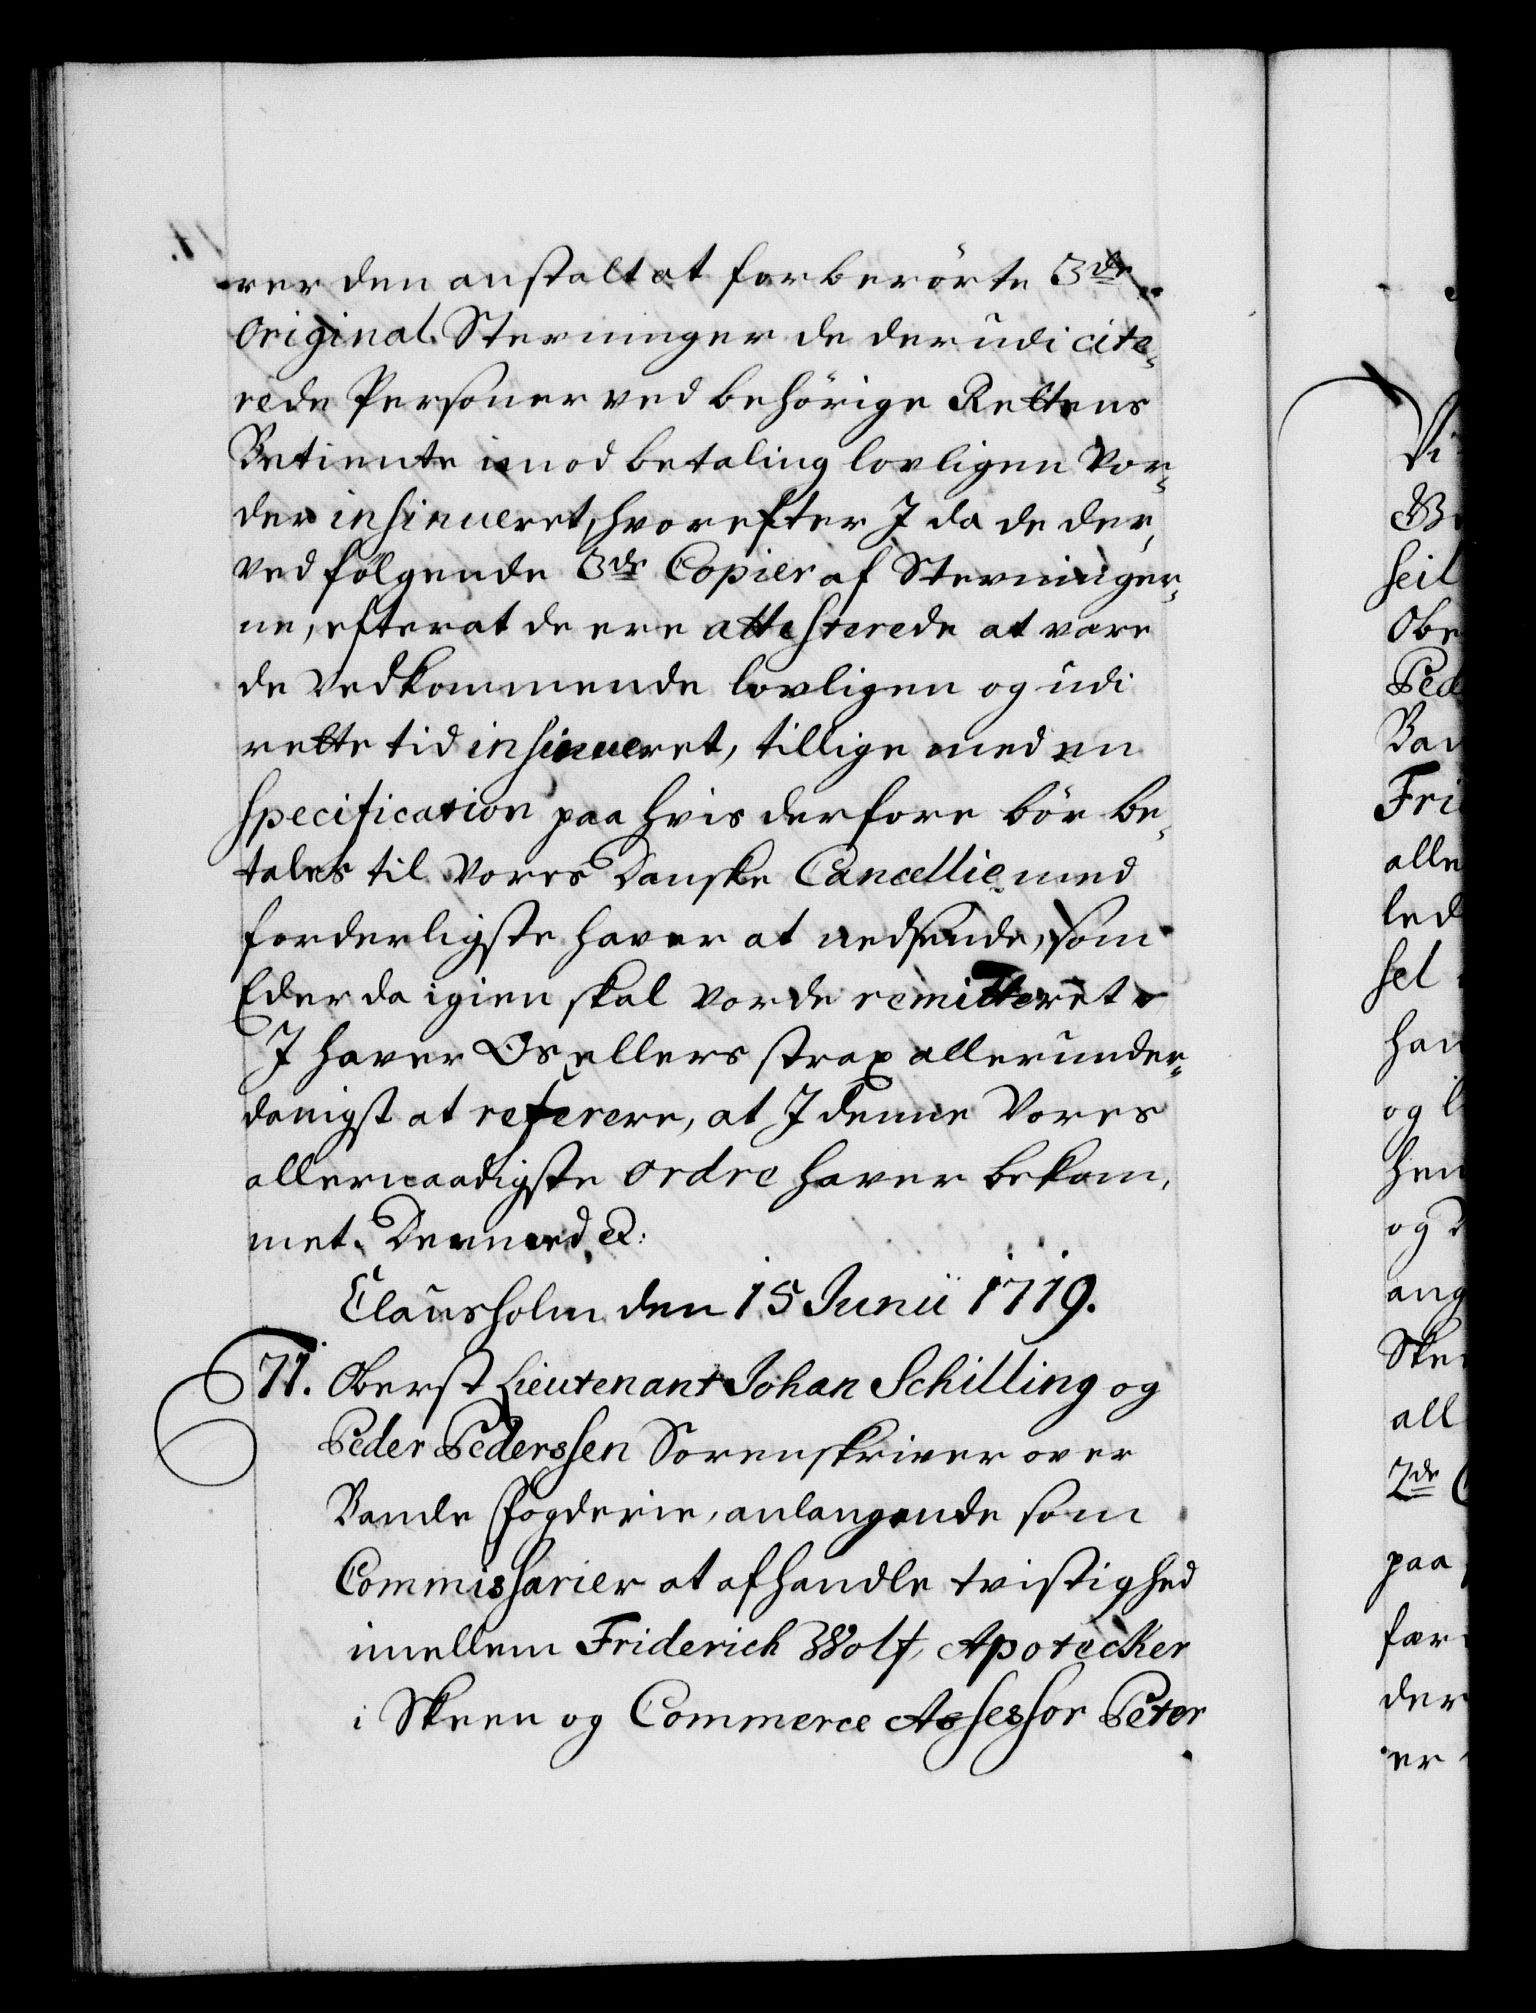 rer den anstalt at forberörte 3de
Original Stevninger de derudi cite-
rede Personer ved behörige Rettens
Betiente imod betaling lovligen Vor-
der insinueret, hvorefter I da de der,
ved fölgende 3de Copier af Stevninger-
ne, efterat de ere attesterede at være
de Vedkommende lovligen og udi
rette tid insinueret, tillige med en
Specification paa hvis derfore bör be-
tales til Vores Danske Cancellie med
forderligste haver at nedsende, som
Eder da igien skal vorde remitteret
I haver Os ellers strax allerunder-
danigst at referere, at I denne Vores
allernaadigste ordre haver bekom,
met. Dermed &:
Clausholm den 15 Junii 1719.
71. Oberst Lieutenant Johan Schilling og
Peder Pederssen Sorenskriver over
Bamle Fogderie, anlangende som
Commissarier at afhandle tvistighed
imellem Friderich Wolf, Apotecker
i Skeen og Commerce Assessor Peter